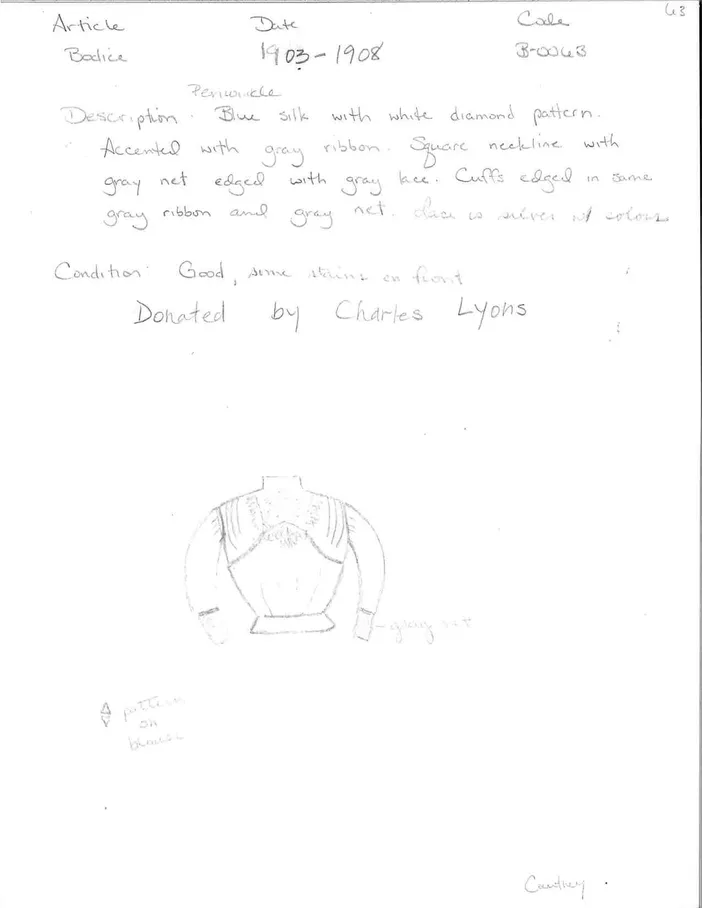 63
Article Date Code
Bodice 1903-1908 B-0063
Periwinkle
Description: Blue silk with white diamond pattern.
Accented with gray ribbon. Square neckline with
gray net edged with gray lace. Cuffs edged in same
gray ribbon and gray net. lace is silver w/ colour
Condition: Good, some stains on front
Donated by Charles Lyons
gray net
pattern
on
blouse